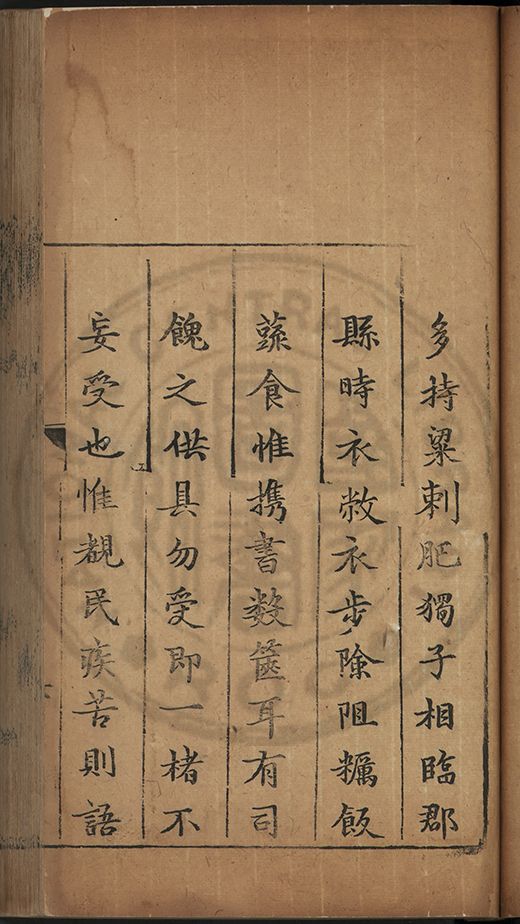 多持粱刺肥獨子相臨郡
縣時衣敝衣步險阻糲飯
蔬食惟携書數篋耳有司
餽之供具勿受即一楮不
妄受也惟覩民疾苦則語